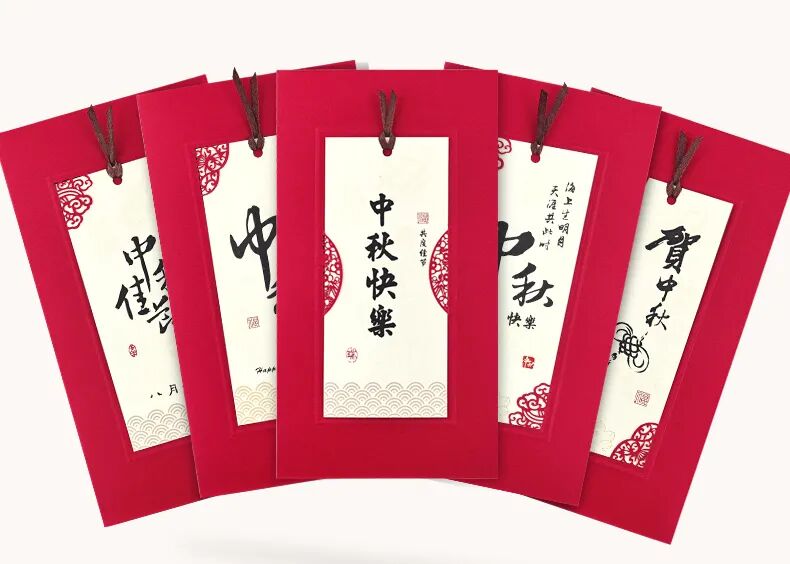 中
佳
八月
中
Happ
中秋快樂
共度佳节
海上生明月
天涯共此时
中秋
快樂
賀
中秋